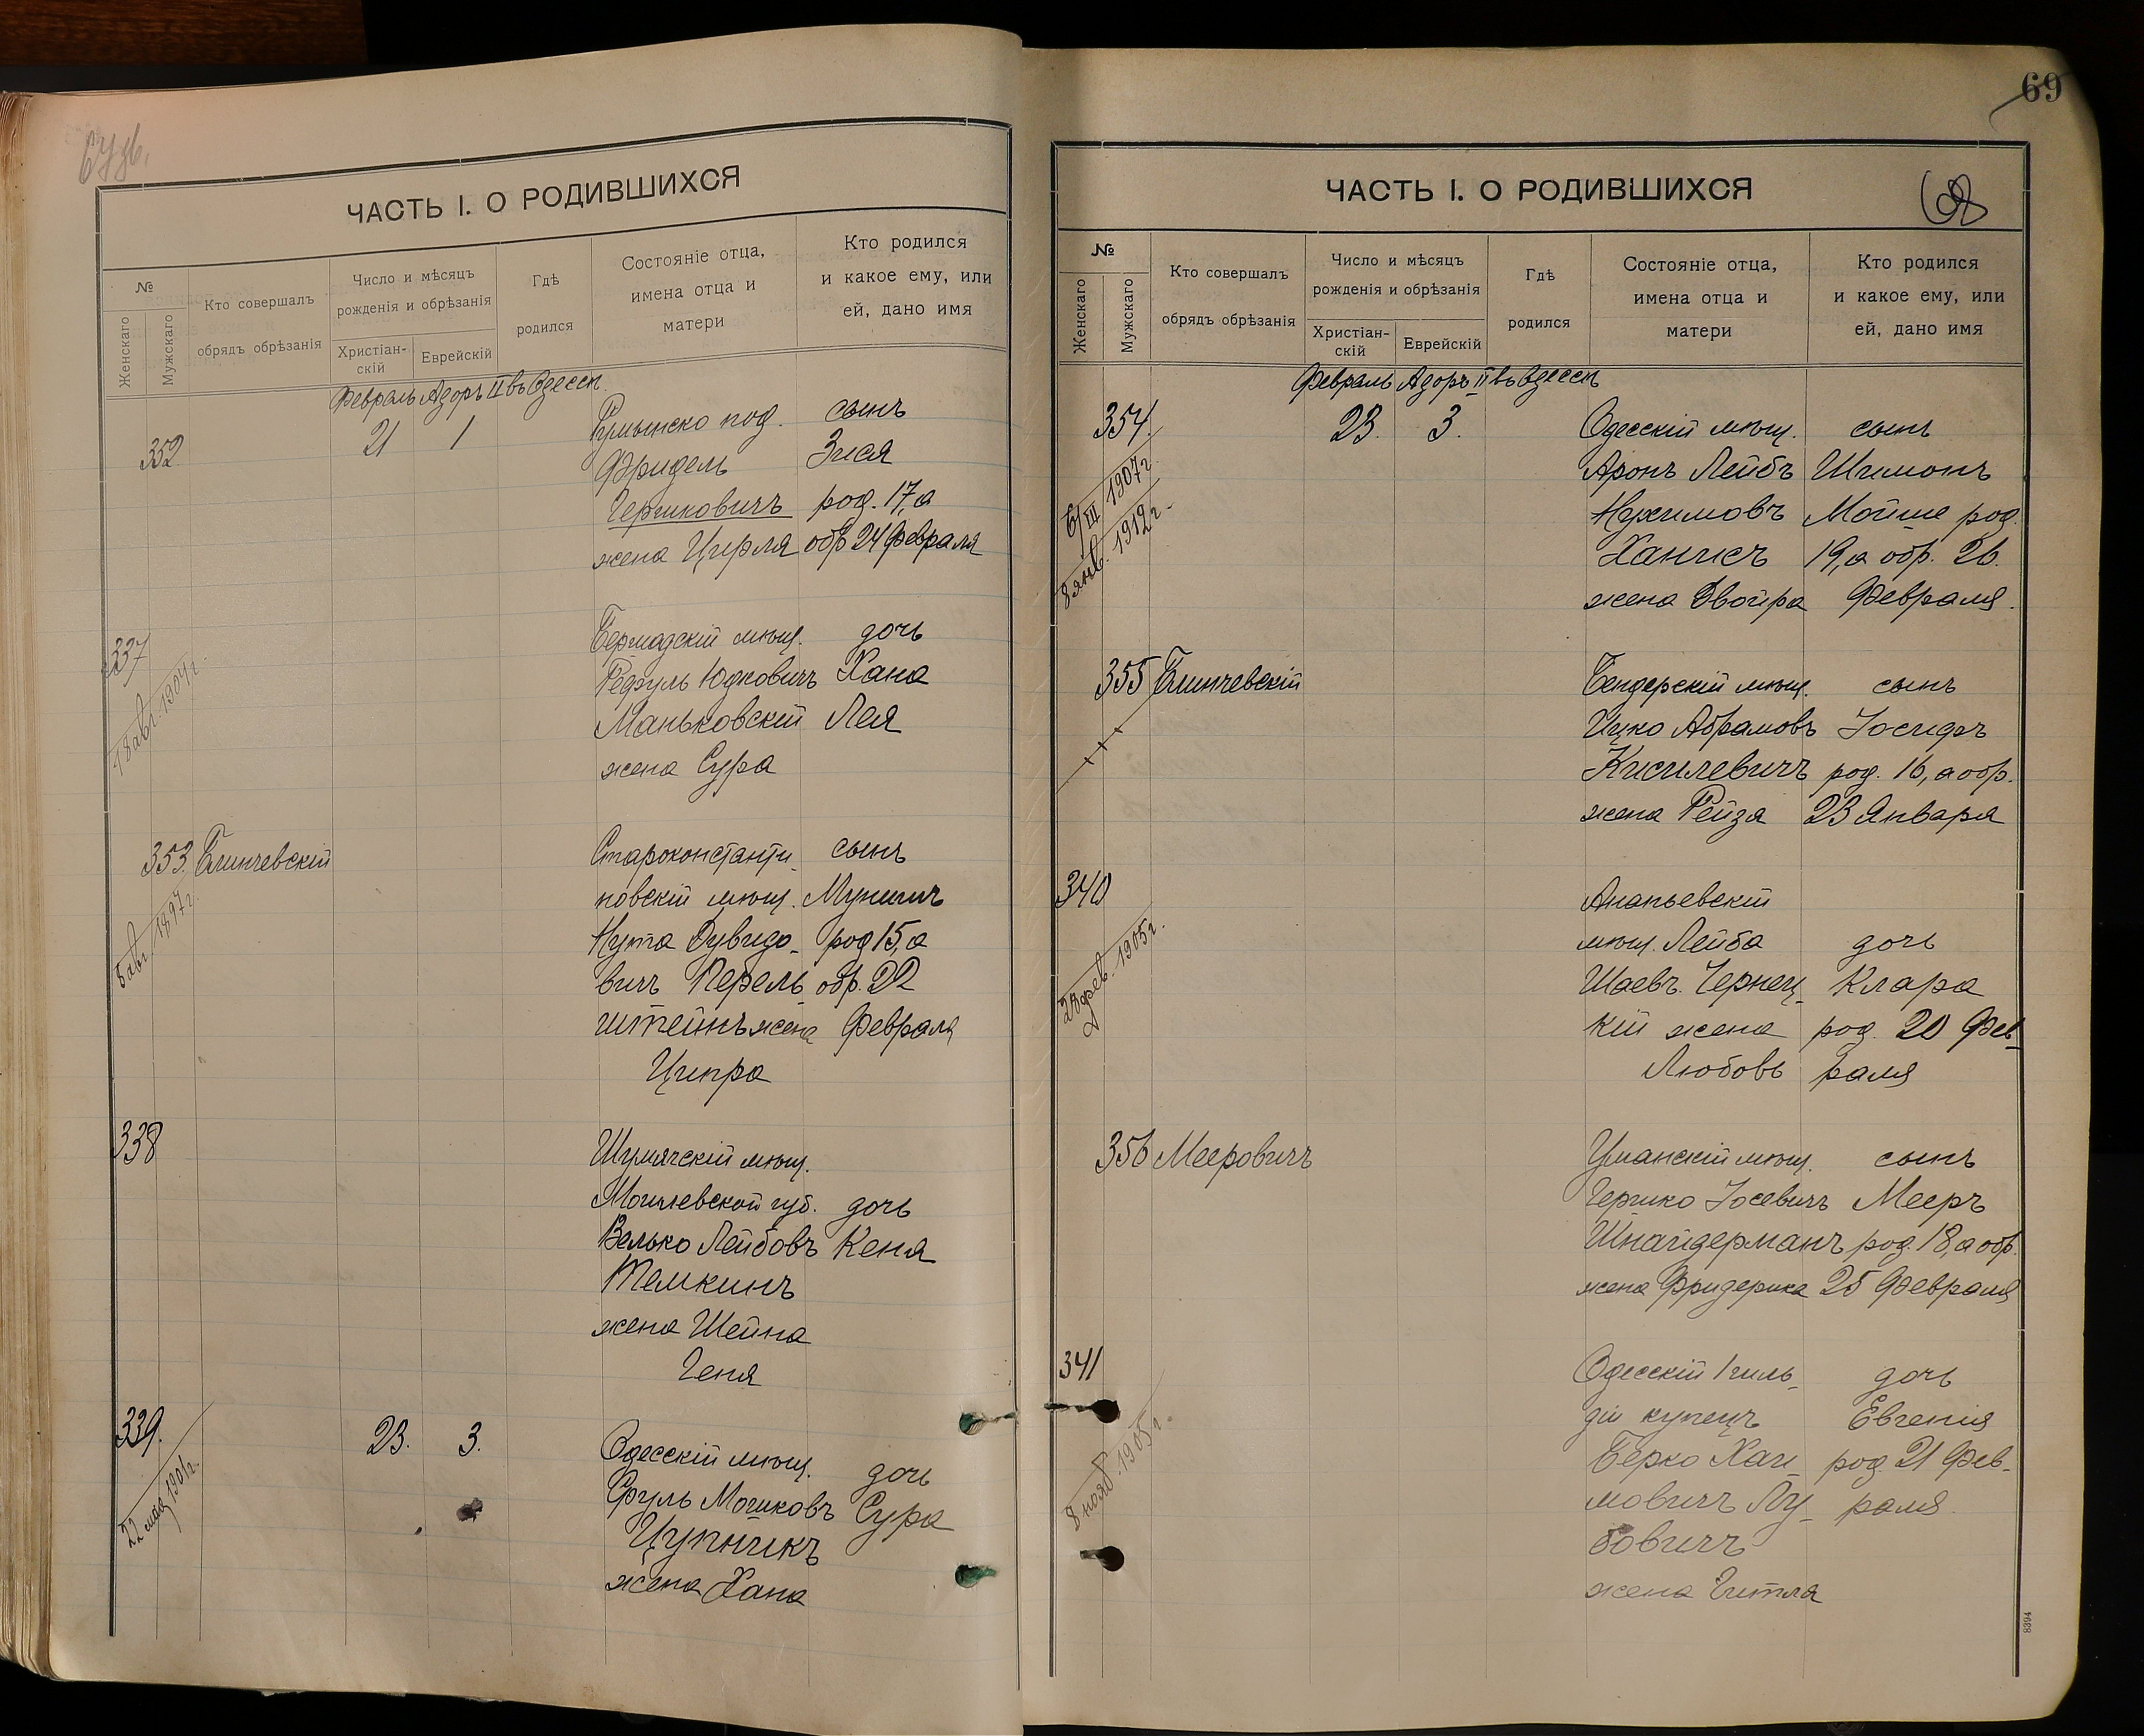 ЧАСТЬ I. О РОДИВШИХСЯ
№
Женскаго
Мужскаго
Кто совершалъ
обрядъ обрѣзанія
Число и мѣсяцъ
рожденія и обрѣзанія
Христіан-
скій
Еврейскій
Гдѣ
родился
Состояніе отца,
имена отца и
матери
Кто родился
и какое ему, или
ей, дано имя
Февраль Адоръ II въ Одессѣ
352
21
1
Румынско под.
Фридель
Гершковичъ
жена Цирля
сынъ
Зися
род. 17, а
обр 24 Февраля
337
18 авг 1904 г.
мѣщ.
Юдковичъ
Маньковскій
жена Сура
дочь
Хана
Лея
353.
Блинчевскій
1897 г.
Староконстанти-
новскій мѣщ.
Нута Дувидо-
вичъ Перель-
штейнъ жена
Ципра
сынъ
Мунишъ
род 15, а
обр. 22
Февраля
338
Шумячскій мѣщ.
Могилевской губ.
Велько Лейбовъ
Темкинъ
жена Шейна
Геня
дочь
Кеня
339.
22 мая 1901 г.
23.
3.
Одесскій мѣщ.
Сруль Мошковъ
Цупникъ
жена Хана
дочь
Сура
69
68
ЧАСТЬ I. О РОДИВШИХСЯ
№
Женскаго
Мужскаго
Кто совершалъ
обрядъ обрѣзанія
Число и мѣсяцъ
рожденія и обрѣзанія
Христіан-
скій
Еврейскій
Гдѣ
родился
Состояніе отца,
имена отца и
матери
Кто родился
и какое ему, или
ей, дано имя
Февраль Адоръ II въ Одессѣ
354.
6/III 1907 г.
8 янв. 1912 г.
23.
3.
Одесскій мѣщ.
Аронъ Лейбъ
Нахимовъ
Ханисъ
жена Двойра
сынъ
Шимонъ
Мойше род.
19, а обр. 26.
Февраля.
355
Блинчевскій
Бендерскій мѣщ.
Ицко Абрамовъ
Кисилевичъ
жена Рейза
сынъ
Іосифъ
род. 16, а обр.
23 Января
340
22 фев. 1905 г.
Ананьевскій
мѣщ. Лейба
Шаевъ Чернец-
кій жена
Любовь
дочь
Клара
род. 20 Фев-
раля
356
Мееровичъ
Уманскій мѣщ.
Гершко Іосевичъ
Шнайдерманъ
жена Фридерика
сынъ
Мееръ
род. 18, а обр.
25 Февраля
341
8 нояб. 1905 г.
Одесскій 1 гиль-
діи купецъ
Берко Хаи-
мовичъ Лу-
бовичъ
жена Гитля
дочь
Евгенія
род. 21 Фев-
раля.
8394